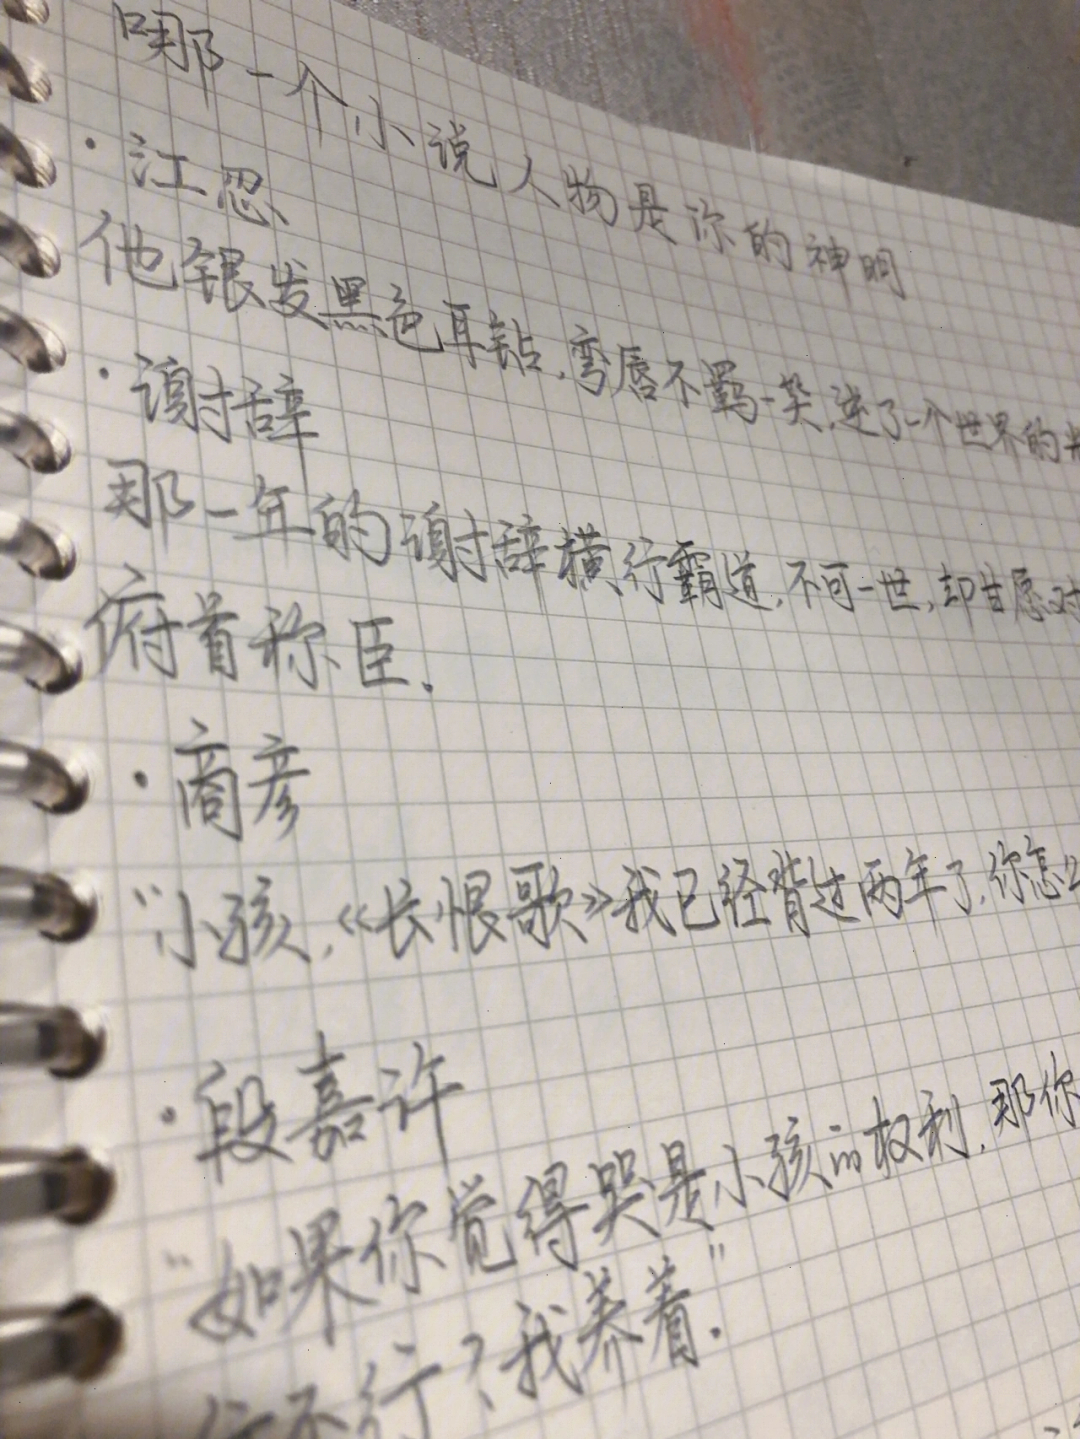 哪一个小说人物是你的神明
·江忍
他银发黑色耳钻,弯唇不羁一笑,逆了一个世界的光
·谢辞
那一年的谢辞横行霸道,不可一世,却甘愿对
俯首称臣.
·商彦
"小孩,《长恨歌》我已经背过两年了,你怎么
·段嘉许
"如果你觉得哭是小孩的权利,那你
行不行?我养着."